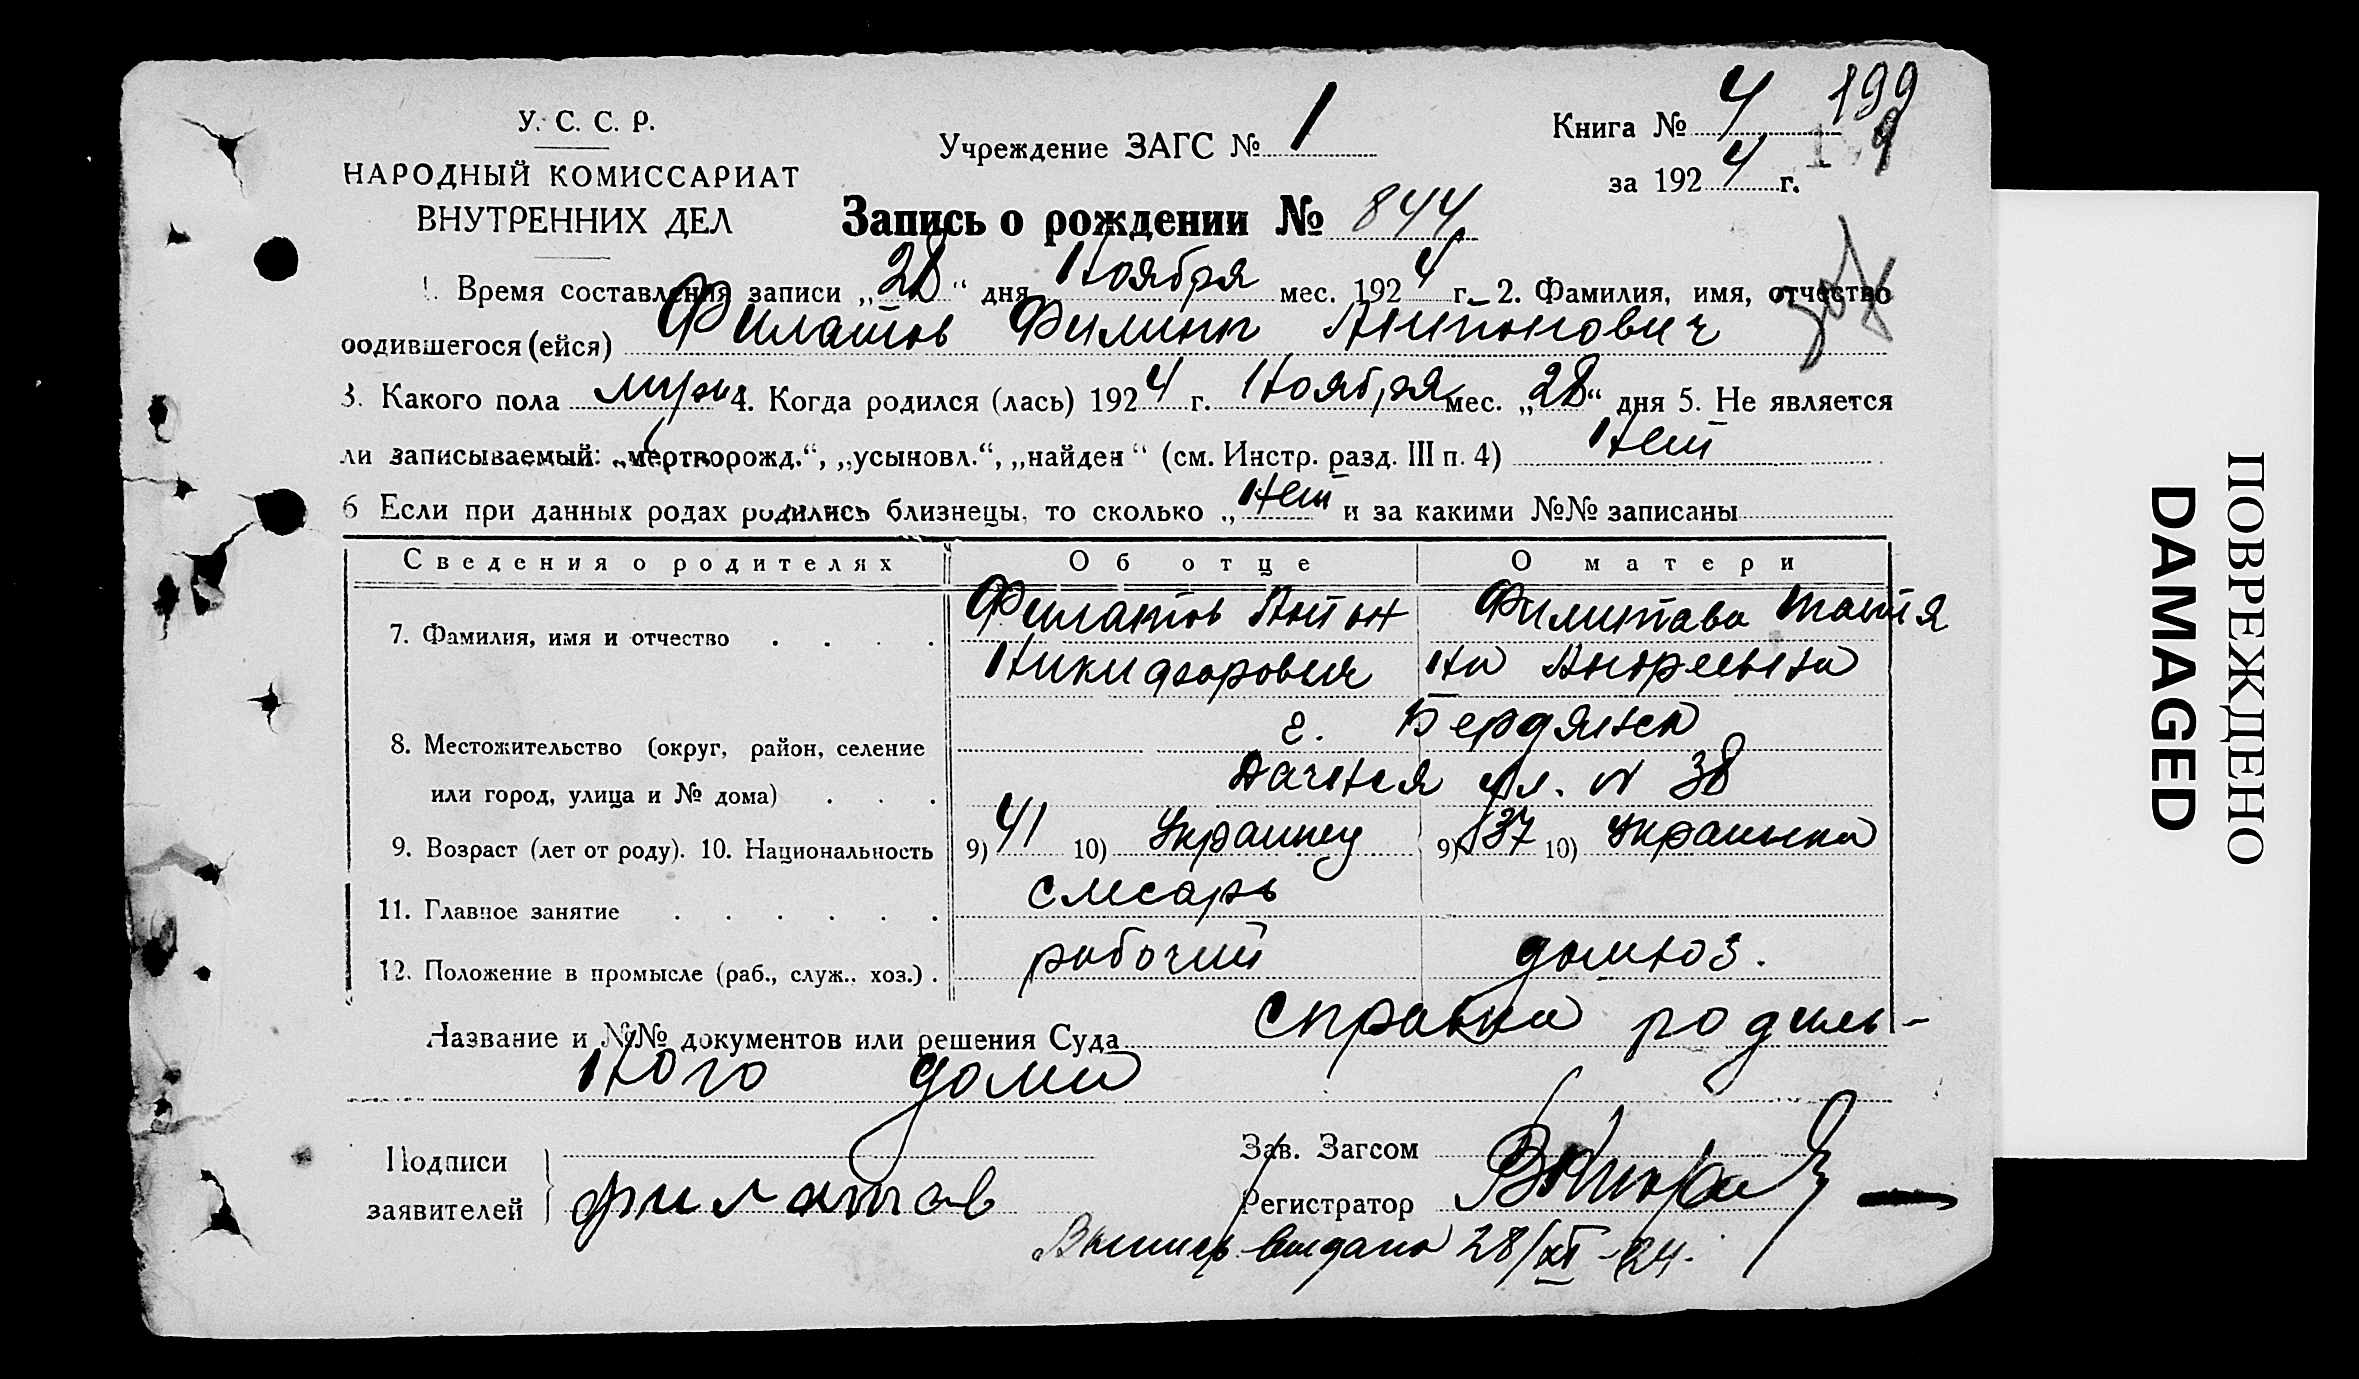 У. С. С. Р.
НАРОДНЫЙ КОМИССАРИАТ
ВНУТРЕННИХ ДЕЛ
Учреждение ЗАГС № 1
Книга № 4
199
за 1924 г.
Запись о рождении № 844
1. Время составления записи „28“ дня Ноября мес. 1924 г. 2. Фамилия, имя, отчество
родившегося (ейся) Филатов Филипп Антонович
3. Какого пола муж 4. Когда родился (лась) 1924 г. Ноября мес. „28“ дня 5. Не является
ли записываемый: „мертворожд.“, „усыновл.“, „найден“ (см. Инстр. разд. III п. 4) Нет
6 Если при данных родах родились близнецы, то сколько „Нет и за какими №№ записаны
Сведения о родителях Об отце О матери
7. Фамилия, имя и отчество . . . . Филатов Антон Филитава Татья
Никифорович на Андреевна
8. Местожительство (округ, район, селение г. Бердянск
или город, улица и № дома) . . . Дачная ул. N 38
9. Возраст (лет от роду). 10. Национальность 9) 41 10) Украинец 9) 37 10) Украинка
11. Главное занятие . . . . . . слесарь
12. Положение в промысле (раб., служ., хоз.) . рабочий домхоз.
Название и №№ документов или решения Суда справка родиль-
ного дома
Подписи
заявителей
филатов
Зав. Загсом
Регистратор
Выпись выдана 28/XI-24.
ПОВРЕЖДЕНО
DAMAGED